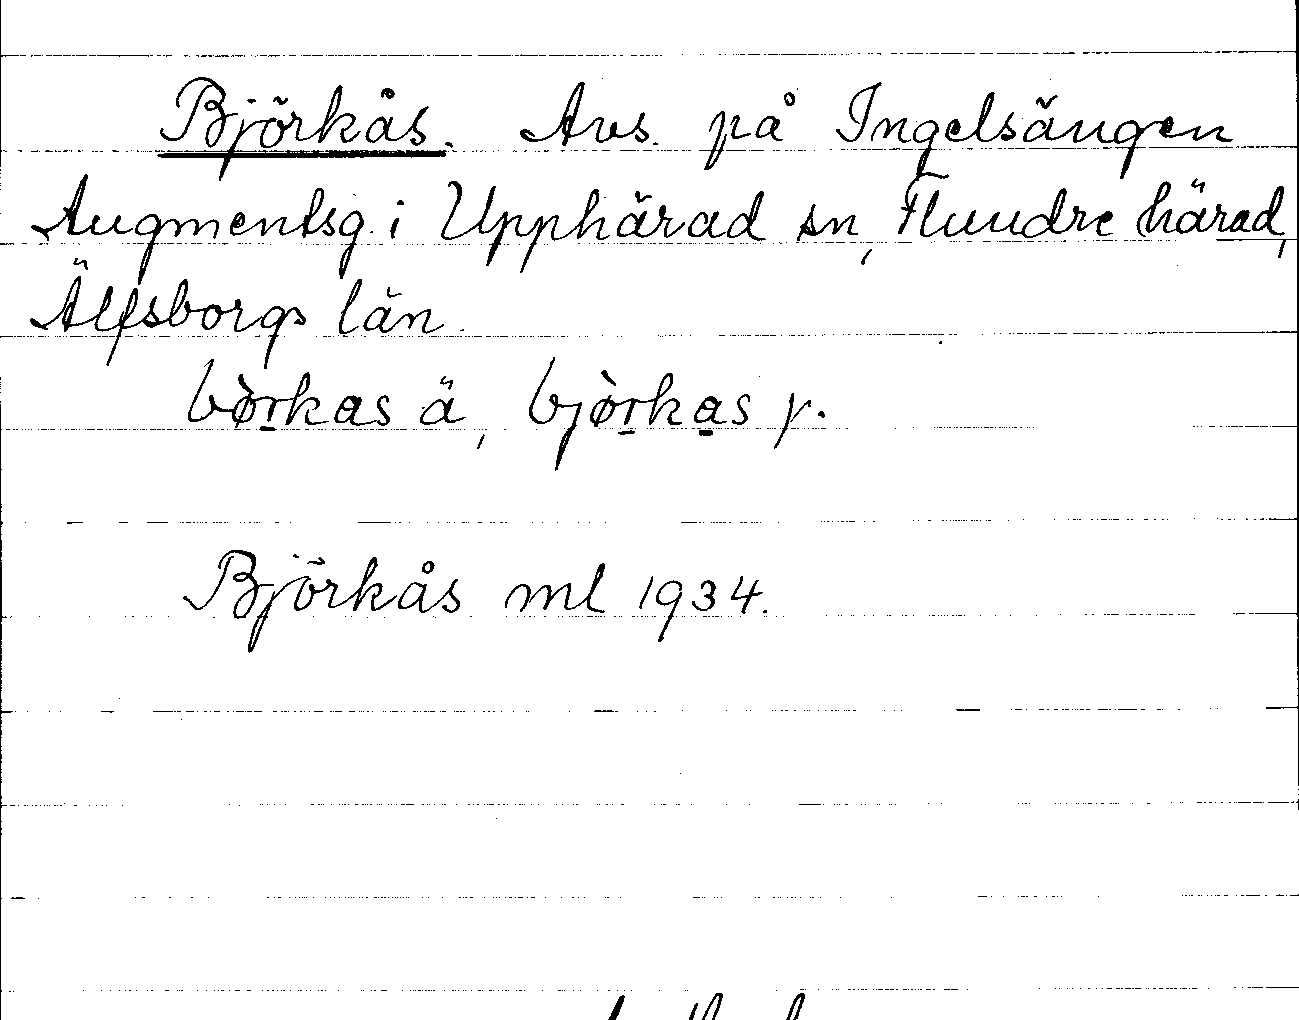 Björkås. Avs. på Ingelsängen
Augmentsg. i Upphärad sn, Flundre härad,
Älfsborgs län.
bø̀rkas ä, bjø̀rkas y.
Björkås ml 1934.